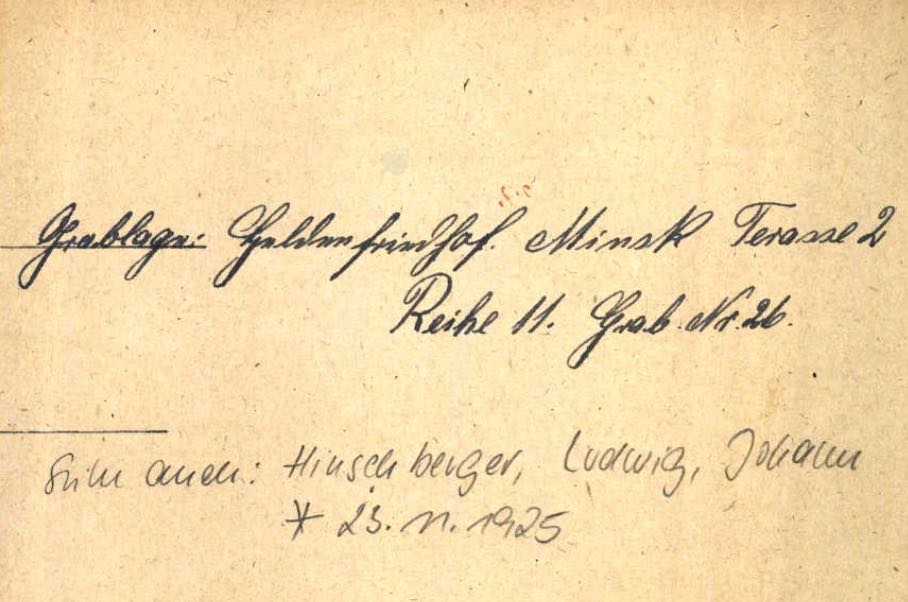 Grablage: Heldenfriedhof. Minsk Terasse 2
Reihe 11. Grab. Nr. 26.
auch: Hinschberger, Ludwig, Johann
* 23. 11. 1925